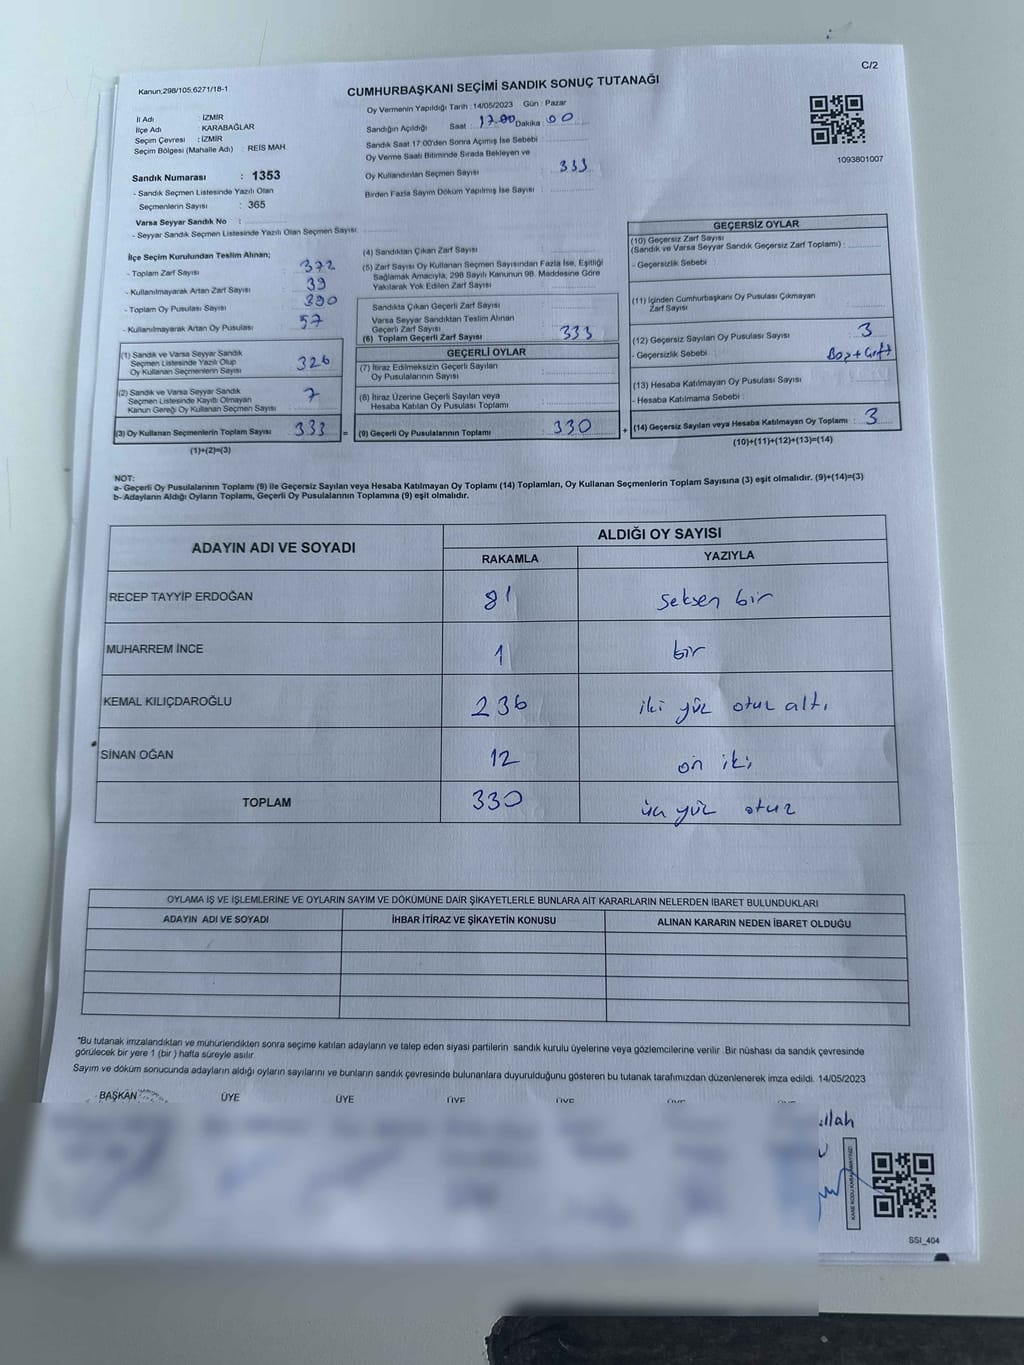 C/2
Kanun:298/105;6271/18-1
CUMHURBAŞKANI SEÇİMİ SANDIK SONUÇ TUTANAĞI
İl Adı : İZMİR
İlçe Adı : KARABAĞLAR
Seçim Çevresi : İZMİR
Seçim Bölgesi (Mahalle Adı) : REİS MAH.
Oy Vermenin Yapıldığı Tarih : 14/05/2023 Gün : Pazar
Sandığın Açıldığı Saat : 17.00 Dakika : 00
Sandık Saat 17:00'den Sonra Açımış İse Sebebi :
Oy Verme Saati Bitiminde Sırada Bekleyen ve
Oy Kullandırılan Seçmen Sayısı : 333
Birden Fazla Sayım Döküm Yapılmış İse Sayısı :
1093801007
Sandık Numarası : 1353
- Sandık Seçmen Listesinde Yazılı Olan
Seçmenlerin Sayısı : 365
Varsa Seyyar Sandık No :
- Seyyar Sandık Seçmen Listesinde Yazılı Olan Seçmen Sayısı:
İlçe Seçim Kurulundan Teslim Alınan;
- Toplam Zarf Sayısı : 372
- Kullanılmayarak Artan Zarf Sayısı : 39
- Toplam Oy Pusulası Sayısı : 390
- Kullanılmayarak Artan Oy Pusulası : 57
(1) Sandık ve Varsa Seyyar Sandık
Seçmen Listesinde Yazılı Olup
Oy Kullanan Seçmenlerin Sayısı : 326
(2) Sandık ve Varsa Seyyar Sandık
Seçmen Listesinde Kayıtlı Olmayan
Kanun Gereği Oy Kullanan Seçmen Sayısı : 7
(3) Oy Kullanan Seçmenlerin Toplam Sayısı : 333 =
(1)+(2)=(3)
(4) Sandıktan Çıkan Zarf Sayısı :
(5) Zarf Sayısı Oy Kullanan Seçmen Sayısından Fazla İse, Eşitliği
Sağlamak Amacıyla; 298 Sayılı Kanunun 98. Maddesine Göre
Yakılarak Yok Edilen Zarf Sayısı :
Sandıkta Çıkan Geçerli Zarf Sayısı :
Varsa Seyyar Sandıktan Teslim Alınan
Geçerli Zarf Sayısı :
(6) Toplam Geçerli Zarf Sayısı : 333
GEÇERLİ OYLAR
(7) İtiraz Edilmeksizin Geçerli Sayılan
Oy Pusulalarının Sayısı :
(8) İtiraz Üzerine Geçerli Sayılan veya
Hesaba Katılan Oy Pusulası Toplamı :
(9) Geçerli Oy Pusulalarının Toplamı : 330 +
GEÇERSİZ OYLAR
(10) Geçersiz Zarf Sayısı
(Sandık ve Varsa Seyyar Sandık Geçersiz Zarf Toplamı) :
- Geçersizlik Sebebi :
(11) İçinden Cumhurbaşkanı Oy Pusulası Çıkmayan
Zarf Sayısı :
(12) Geçersiz Sayılan Oy Pusulası Sayısı : 3
- Geçersizlik Sebebi : Boş+Çift
(13) Hesaba Katılmayan Oy Pusulası Sayısı :
- Hesaba Katılmama Sebebi :
(14) Geçersiz Sayılan veya Hesaba Katılmayan Oy Toplamı : 3
(10)+(11)+(12)+(13)=(14)
NOT:
a- Geçerli Oy Pusulalarının Toplamı (9) ile Geçersiz Sayılan veya Hesaba Katılmayan Oy Toplamı (14) Toplamları, Oy Kullanan Seçmenlerin Toplam Sayısına (3) eşit olmalıdır. (9)+(14)=(3)
b- Adayların Aldığı Oyların Toplamı, Geçerli Oy Pusulalarının Toplamına (9) eşit olmalıdır.
ADAYIN ADI VE SOYADI ALDIĞI OY SAYISI
RAKAMLA YAZIYLA
RECEP TAYYİP ERDOĞAN 81 seksen bir
MUHARREM İNCE 1 bir
KEMAL KILIÇDAROĞLU 236 iki yüz otuz altı
SİNAN OĞAN 12 on iki
TOPLAM 330 üç yüz otuz
OYLAMA İŞ VE İŞLEMLERİNE VE OYLARIN SAYIM VE DÖKÜMÜNE DAİR ŞİKAYETLERLE BUNLARA AİT KARARLARIN NELERDEN İBARET BULUNDUKLARI
ADAYIN ADI VE SOYADI İHBAR İTİRAZ VE ŞİKAYETİN KONUSU ALINAN KARARIN NEDEN İBARET OLDUĞU
*Bu tutanak imzalandıktan ve mühürlendikten sonra seçime katılan adayların ve talep eden siyasi partilerin sandık kurulu üyelerine veya gözlemcilerine verilir. Bir nüshası da sandık çevresinde
görülecek bir yere 1 (bir ) hafta süreyle asılır.
Sayım ve döküm sonucunda adayların aldığı oyların sayılarını ve bunların sandık çevresinde bulunanlara duyurulduğunu gösteren bu tutanak tarafımızdan düzenlenerek imza edildi. 14/05/2023
BAŞKAN ÜYE ÜYE ÜYE ÜYE
SSI_404